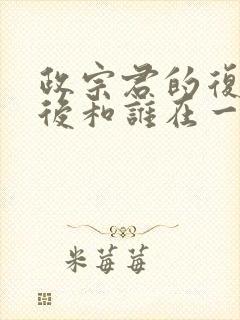 政宗君的復
後和誰在一
米莓莓